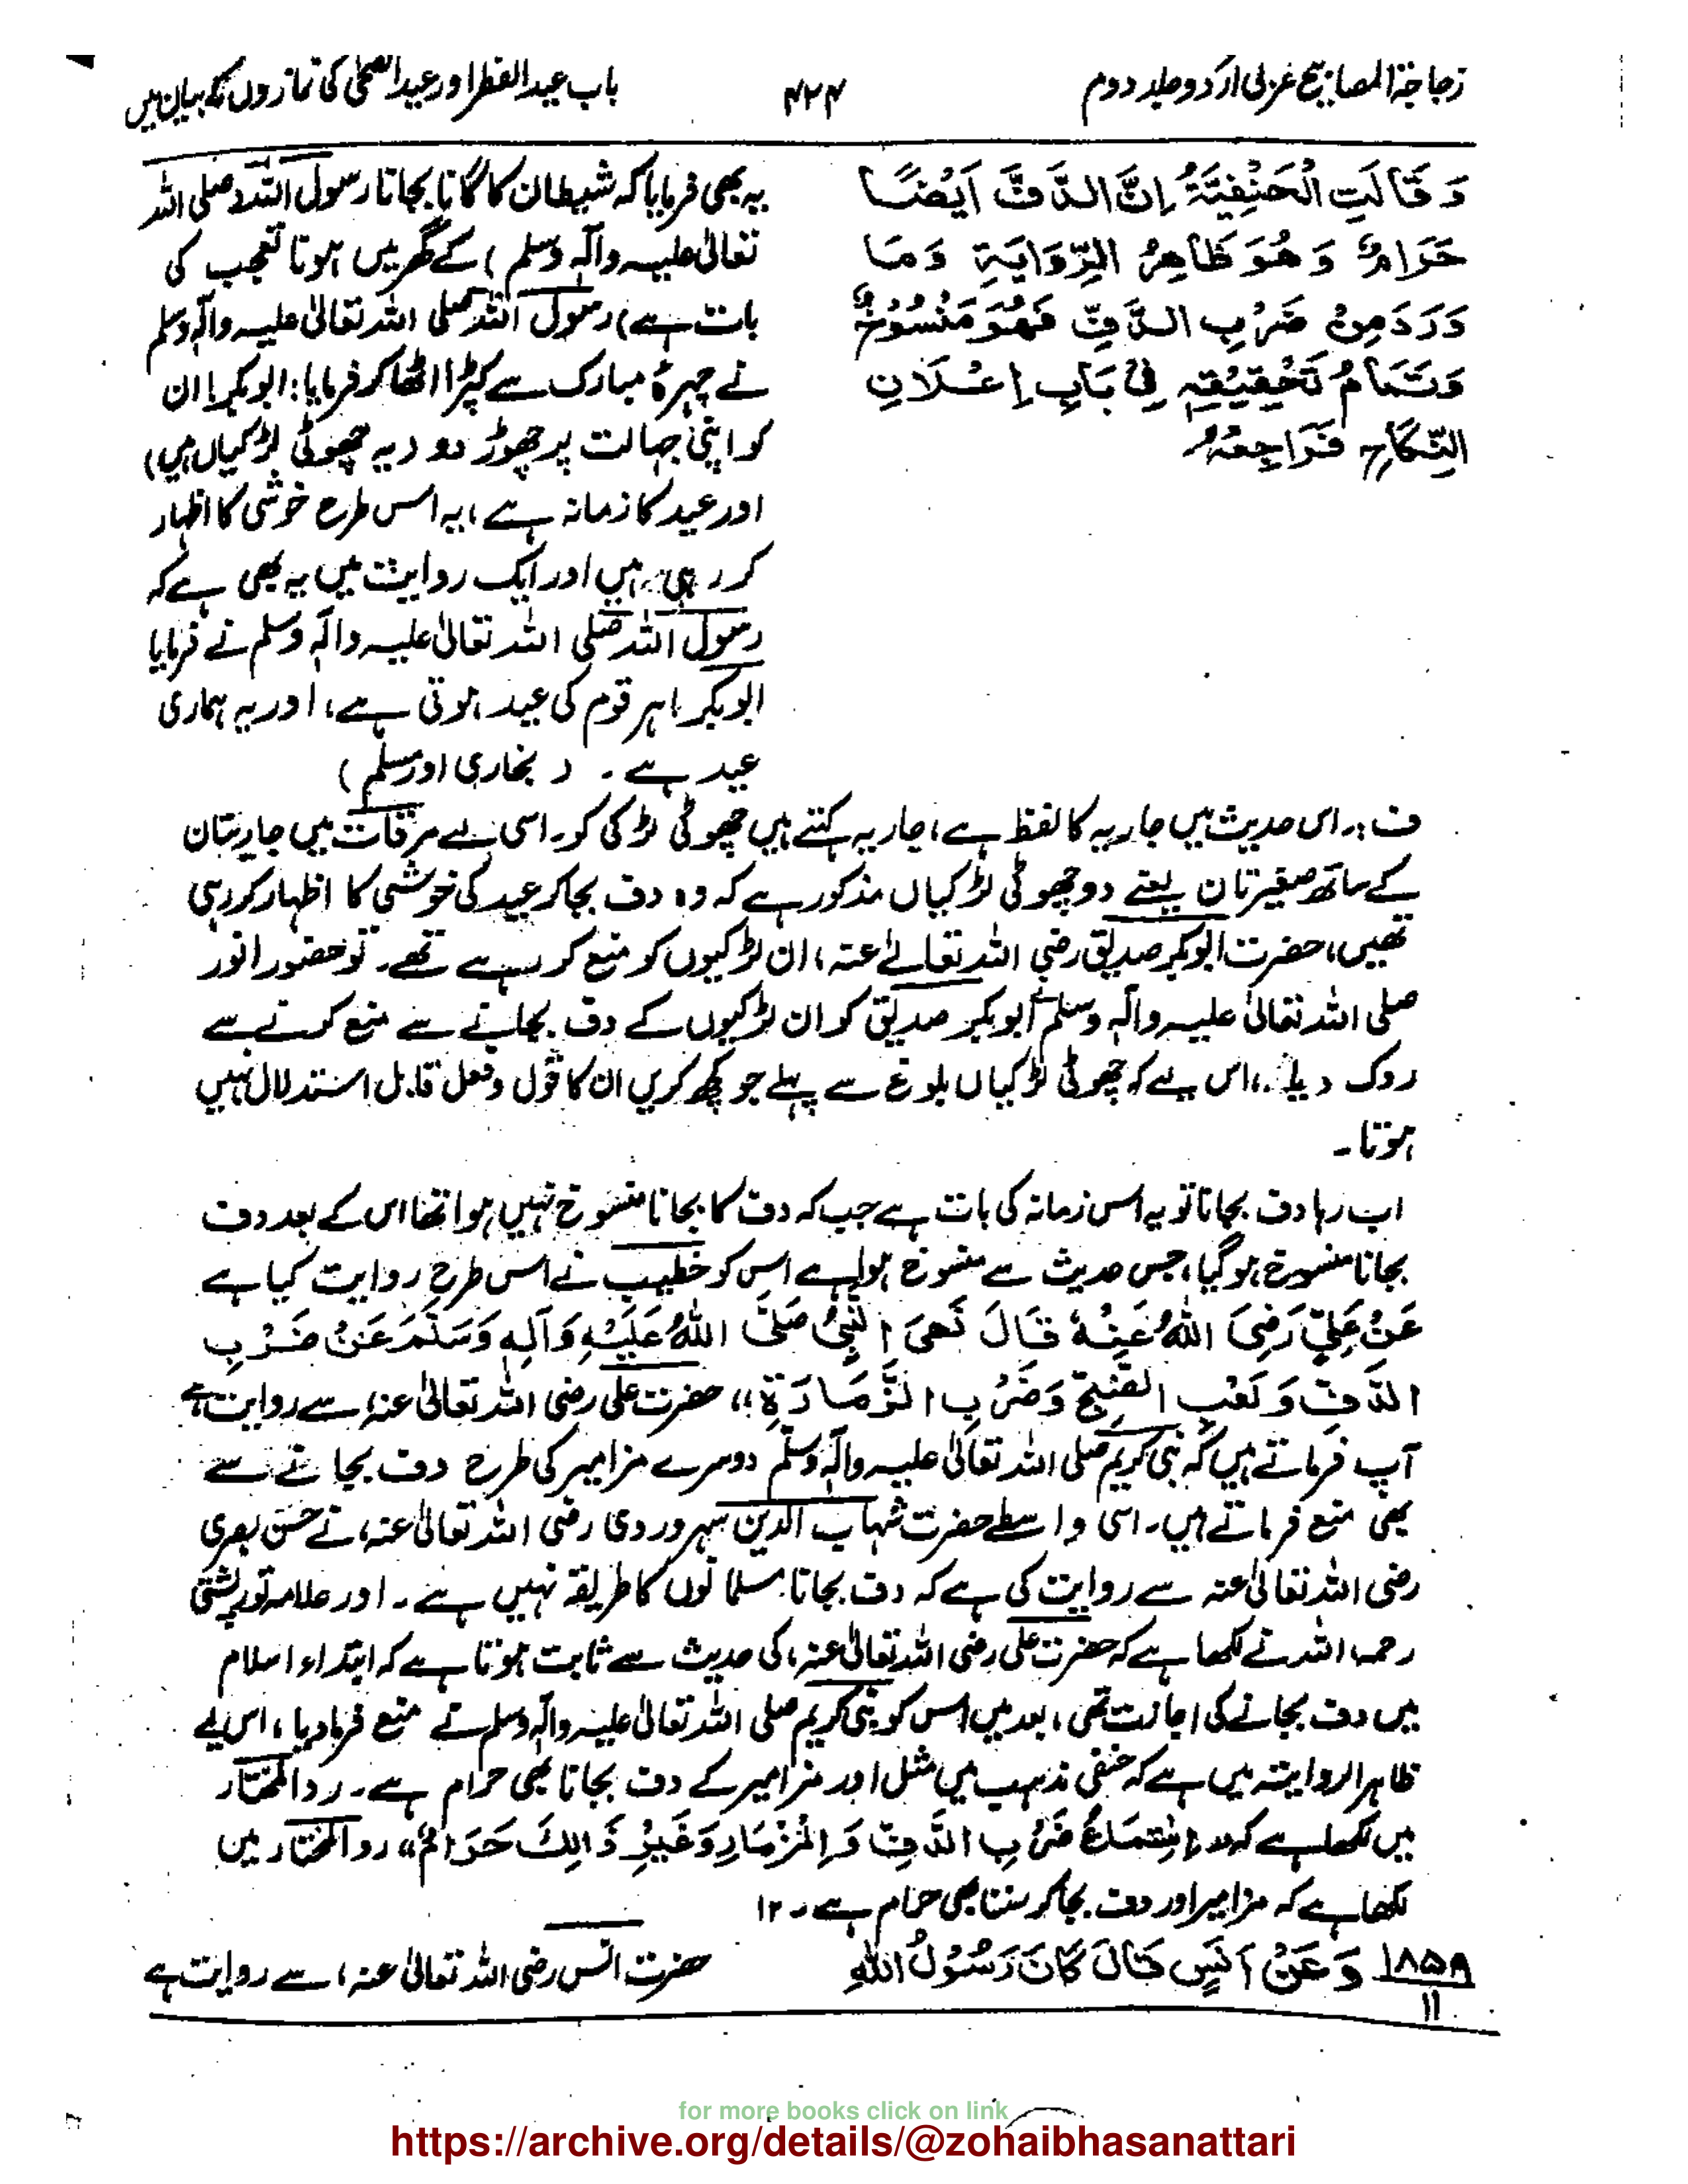 زجاجۃ المصابیح عربی اردو جلد دوم
۴۲۴
باب عید الفطر اور عید الضحٰی کی نمازوں کے بیان میں
وَ قَالَتِ الْحَنْفِیَّۃُ اِنَّ الدَّفَّ اَیْضًا
حَرَامٌ وَ هُوَ ظَاهِرُ الرِّوَایَۃِ وَمَا
وَرَدَ مِنْ ضَرْبِ الدَّفِّ فَهُوَ مَنْسُوْخٌ
وَتَمَامُ تَحْقِیْقِہٖ فِیْ بَابِ اِعْلَانِ
النِّکَاحِ فَرَاجِعْہُ
یہ بھی فرمایا کہ شیطان کا گانا بجانا رسول اللہ (صلی اللہ
تعالیٰ علیہ وآلہٖ وسلم) کے گھر میں ہونا تعجب کی
بات ہے) رسول اللہ صلی اللہ تعالیٰ علیہ وآلہٖ وسلم
نے چہرۂ مبارک سے کپڑا اٹھا کر فرمایا: ابو بکر! ان
کو اپنی حالت پر چھوڑ دو (یہ چھوٹی لڑکیاں ہیں)
اور عید کا زمانہ ہے، یہ اس طرح خوشی کا اظہار
کر رہی ہیں اور ایک روایت میں یہ بھی ہے کہ
رسول اللہ صلی اللہ تعالیٰ علیہ وآلہٖ وسلم نے فرمایا
ابو بکر! ہر قوم کی عید ہوتی ہے، اور یہ ہماری
عید ہے۔ (بخاری اور مسلم)
ف:۔ اس حدیث میں جاریہ کا لفظ ہے، جاریہ کہتے ہیں چھوٹی لڑکی کو۔ اسی لیے مرقات میں جاریتان
کے ساتھ صغیرتان یعنے دو چھوٹی لڑکیاں مذکور ہے کہ وہ دف بجا کر عید کی خوشی کا اظہار کر رہی
تھیں، حضرت ابو بکر صدیق رضی اللہ تعالےٰ عنہ، ان لڑکیوں کو منع کر رہے تھے۔ تو حضور انور
صلی اللہ تعالیٰ علیہ وآلہٖ وسلم ابو بکر صدیق کو ان لڑکیوں کے دف بجانے سے منع کرنے سے
روک دیا، اس لیے کہ چھوٹی لڑکیاں بلوغ سے پہلے جو کچھ کریں ان کا قول و فعل قابل استدلال نہیں
ہوتا۔
اب رہا دف بجانا تو یہ اس زمانہ کی بات ہے جب کہ دف کا بجانا منسوخ نہیں ہوا تھا اس کے بعد دف
بجانا منسوخ ہو گیا، جس حدیث سے منسوخ ہوا ہے اس کو خطیب نے اس طرح روایت کیا ہے
عَنْ عَلِیٍّ رَضِیَ اللّٰهُ عَنْہُ قَالَ نَهَی النَّبِیُّ صَلَّی اللّٰهُ عَلَیْہِ وَآلِہٖ وَسَلَّمَ عَنْ ضَرْبِ
الدَّفِّ وَ لَعْبِ الصَّنْجِ وَضَرْبِ الزَّمَارَۃِ،، حضرت علی رضی اللہ تعالیٰ عنہ، سے روایت ہے
آپ فرماتے ہیں کہ نبی کریم صلی اللہ تعالیٰ علیہ وآلہٖ وسلم دوسرے مزامیر کی طرح دف بجانے سے
بھی منع فرماتے ہیں۔ اسی واسطے حضرت شہاب الدین سہروردی رضی اللہ تعالیٰ عنہ، نے حسن بصری
رضی اللہ تعالیٰ عنہ سے روایت کی ہے کہ دف بجانا مسلمانوں کا طریقہ نہیں ہے۔ اور علامہ تورپشتی
رحمہ اللہ نے لکھا ہے کہ حضرت علی رضی اللہ تعالیٰ عنہ، کی حدیث سے ثابت ہوتا ہے کہ ابتداء اسلام
میں دف بجانے کی اجازت تھی، بعد میں اس کو نبی کریم صلی اللہ تعالیٰ علیہ وآلہٖ وسلم نے منع فرما دیا، اس لیے
ظاہر الروایتہ میں ہے کہ حنفی مذہب میں مثل اور مزامیر کے دف بجانا بھی حرام ہے۔ رد المختار
میں لکھا ہے کہ،، اِسْتِمَاعُ ضَرْبِ الدَّفِّ وَالْمِزْمَارِ وَغَیْرِ ذَالِكَ حَرَامٌ،، رد المختار میں
لکھا ہے کہ مزامیر اور دف بجا کر سننا بھی حرام ہے۔ ۱۲
۱۸۵۹
۱۱
وَعَنْ اَنَسٍ قَالَ کَانَ رَسُوْلُ اللّٰهِ
حضرت انس رضی اللہ تعالیٰ عنہ، سے روایت ہے
for more books click on link
https://archive.org/details/@zohaibhasanattari